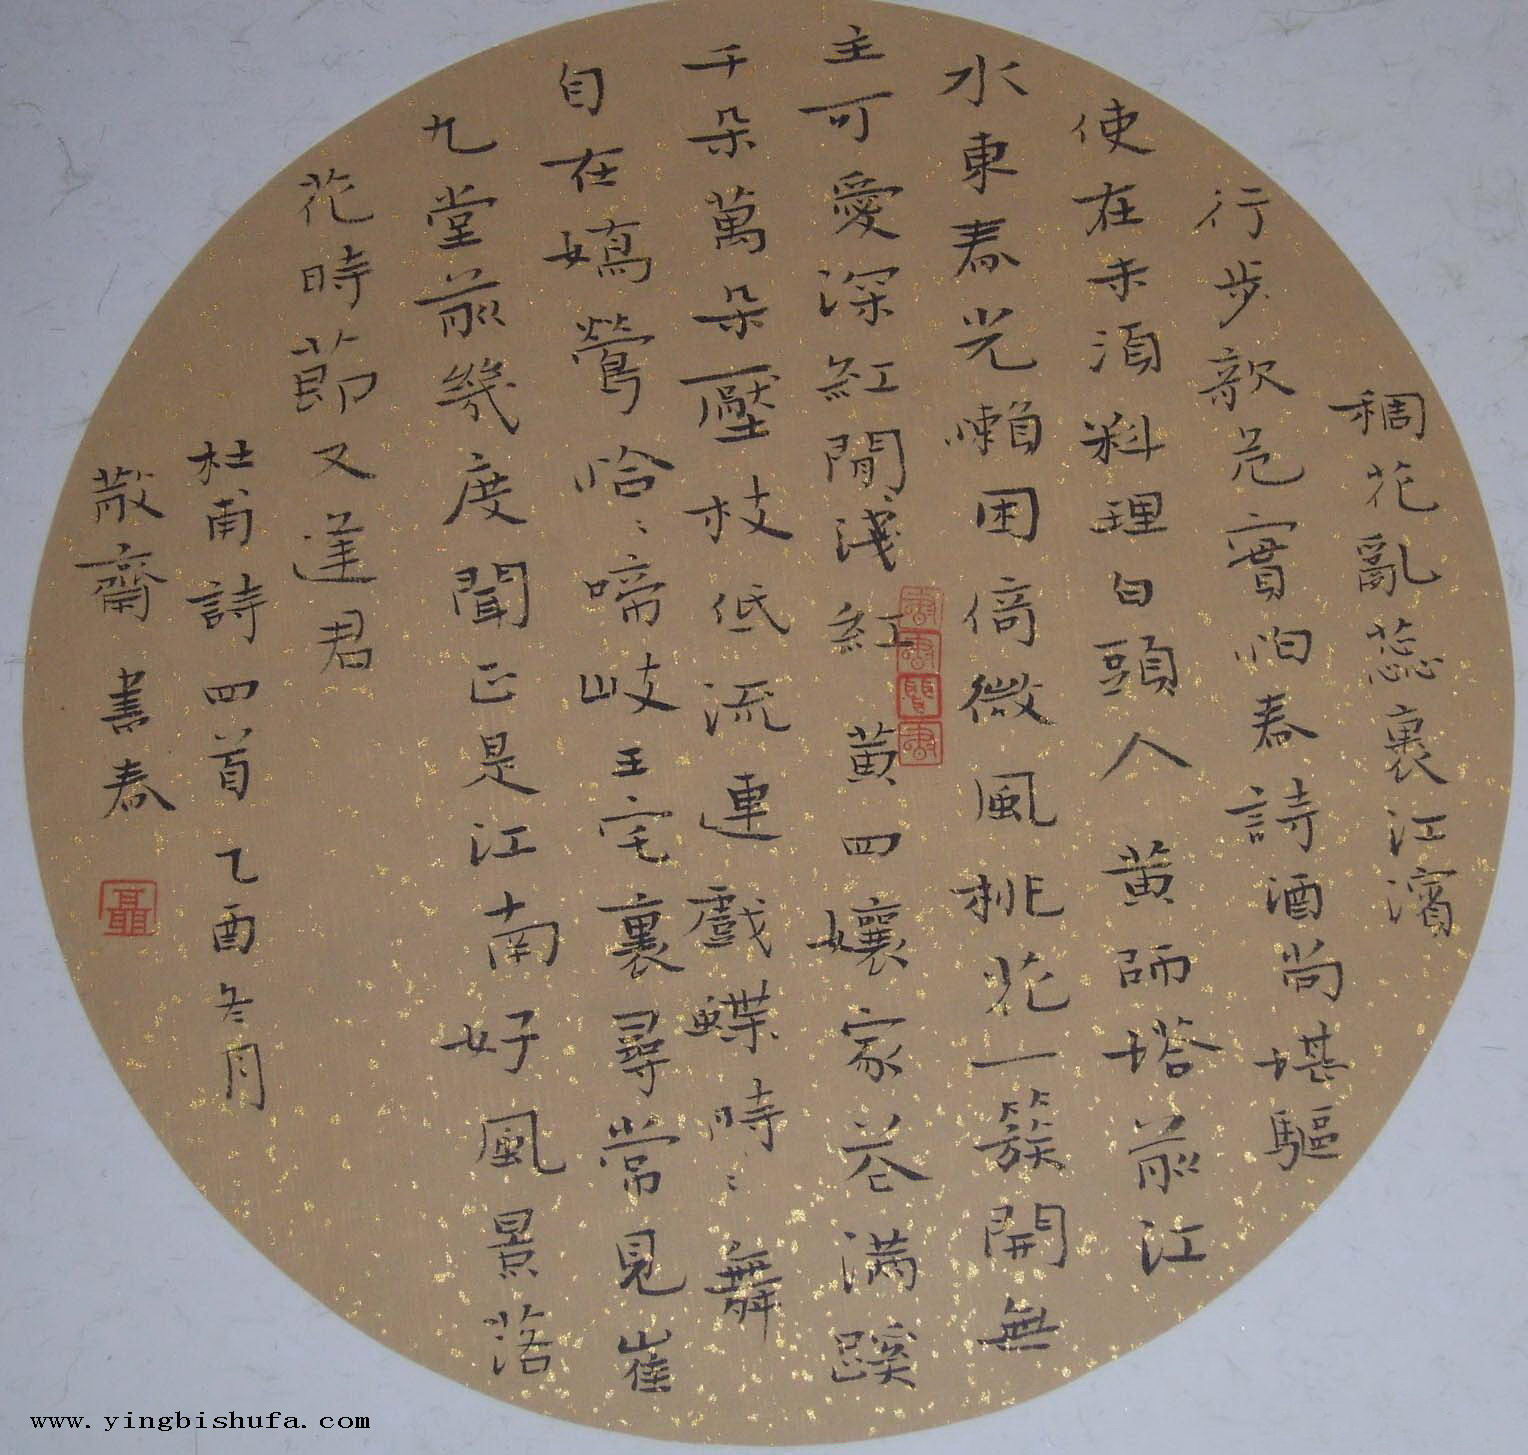 稠花亂蕊裏江濱
行步欹危實怕春詩酒尚堪驅
使在未須料理白頭人黄師塔前江
水東春光懶困倚微風桃花一簇開無
主可愛深紅間淺紅黄四孃家花滿蹊
千朵萬朵壓枝低流連戲蝶時〻舞
自在嬌鶯恰〻啼岐王宅裏尋常見崔
九堂前幾度聞正是江南好風景落
花時節又逢君
杜甫詩四首乙酉冬月
散齋書春
聶
www.yingbishufa.com